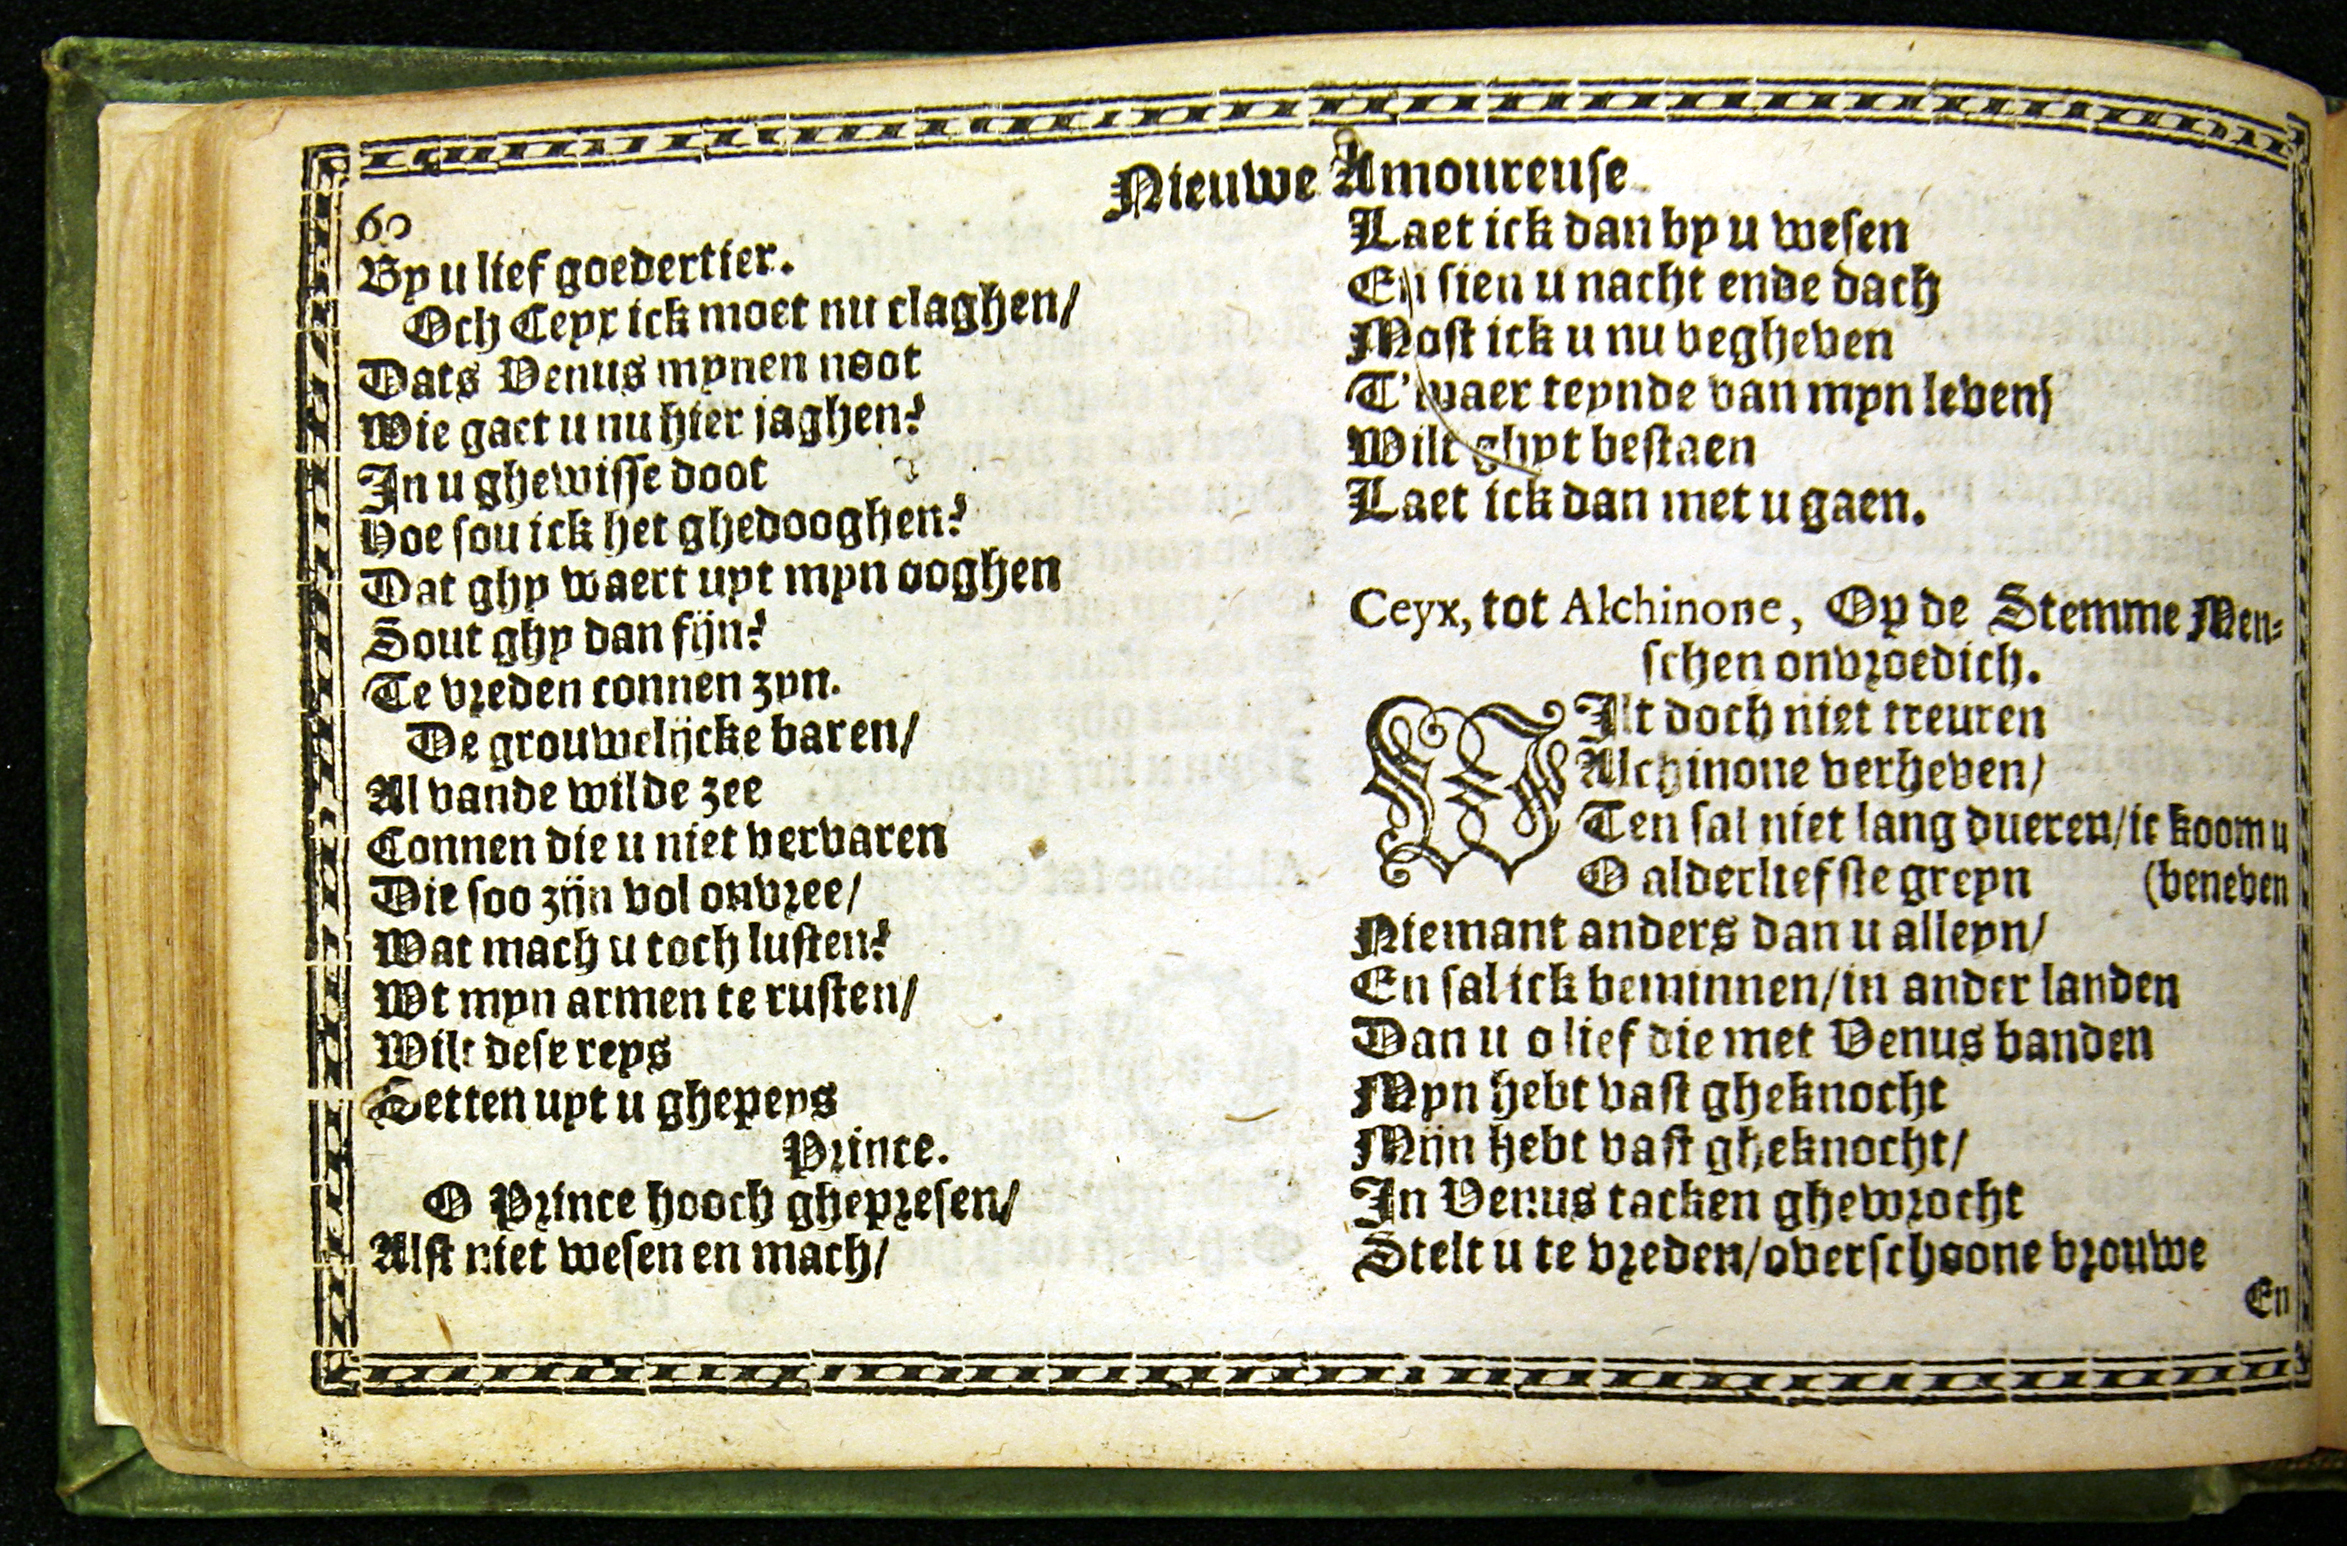 Nieuwe Amoureuse
60
By u lief goedertier.
Och Ceyx ick moet nu claghen/
Dats Venus mynen noot
Wie gaet u nu hier jaghen?
In u ghewisse doot
Hoe sou ick het ghedooghen?
Dat ghy waert uyt myn ooghen
Sout ghy dan fijn?
Te vreden connen zyn.
De grouwelijcke baren/
Al vande wilde zee
Connen die u niet vervaren
Die soo zijn vol onvree/
Wat mach u toch lusten?
Wt myn armen te rusten/
Wilt dese reys
Setten uyt u ghepeys
Prince.
O Prince hooch ghepresen/
Alst niet wesen en mach/
Laet ick dan by u wesen
En sien u nacht ende dach
Most ick u nu begheven
T'waer teynde van myn leven/
Wilt ghyt bestaen
Laet ick dan met u gaen.
Ceyx, tot Alchinone, Op de Stemme Men-
schen onvroedich.
WIlt doch niet treuren
Alchinone verheven/
Ten sal niet lang dueren/ic koom u
O alderliefste greyn (beneven
Niemant anders dan u alleyn/
En sal ick beminnen/in ander landen
Dan u o lief die met Venus banden
Myn hebt vast gheknocht
Mijn hebt vast gheknocht/
In Venus tacken ghewrocht
Stelt u te vreden/overschoone vrouwe
En